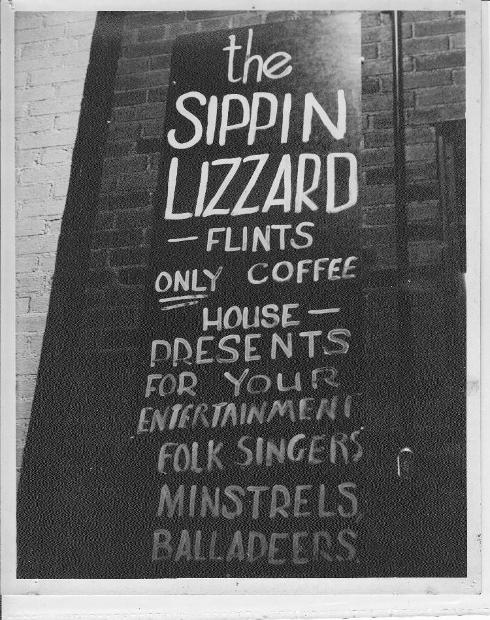 the
SIPPIN
LIZZARD
— FLINTS
ONLY COFFEE
HOUSE —
PRESENTS
FOR YOUR
ENTERTAINMENT
FOLK SINGERS
MINSTRELS,
BALLADEERS.